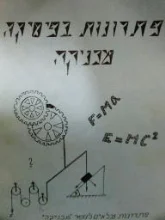 פתרונות בפיסיקה
מכניקה
F=MA
E=MC²